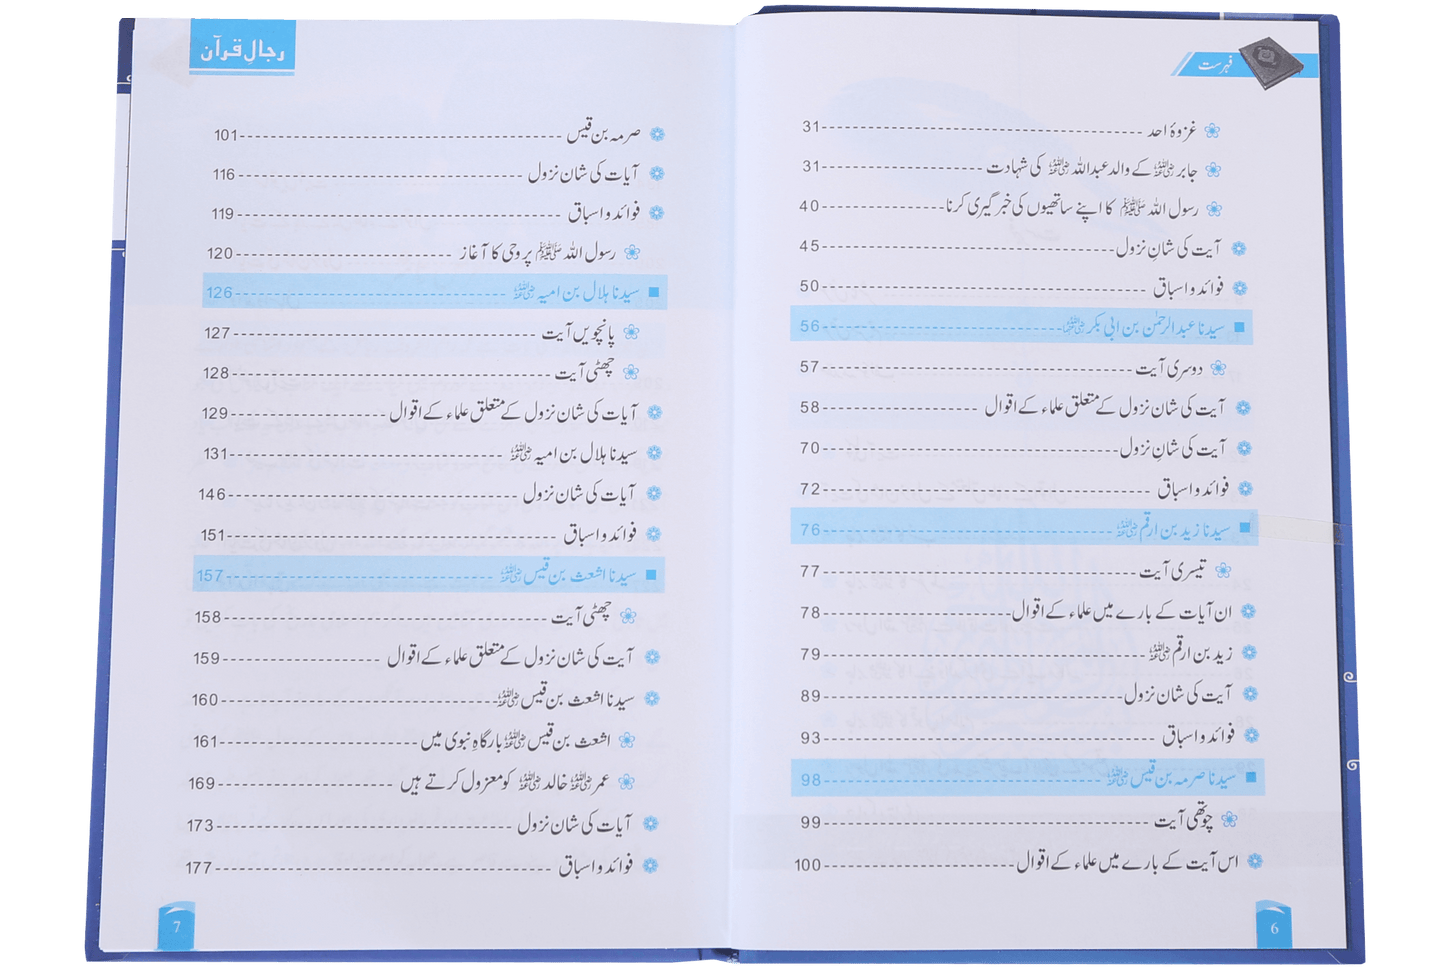 فہرست
غزوۂ احد 31
جابر رضی اللہ عنہ کے والد عبداللہ رضی اللہ عنہ کی شہادت 31
رسول اللہ ﷺ کا اپنے ساتھیوں کی خبر گیری کرنا 40
آیت کی شانِ نزول 45
فوائد و اسباق 50
سیدنا عبدالرحمٰن بن ابی بکر رضی اللہ عنہما 56
دوسری آیت 57
آیت کی شان نزول کے متعلق علماء کے اقوال 58
آیت کی شانِ نزول 70
فوائد و اسباق 72
سیدنا زید بن ارقم رضی اللہ عنہ 76
تیسری آیت 77
ان آیات کے بارے میں علماء کے اقوال 78
زید بن ارقم رضی اللہ عنہ 79
آیت کی شان نزول 89
فوائد و اسباق 93
سیدنا صرمہ بن قیس رضی اللہ عنہ 98
چوتھی آیت 99
اس آیت کے بارے میں علماء کے اقوال 100
6
رجالِ قرآن
صرمہ بن قیس 101
آیات کی شان نزول 116
فوائد و اسباق 119
رسول اللہ ﷺ پر وحی کا آغاز 120
سیدنا ہلال بن امیہ رضی اللہ عنہ 126
پانچویں آیت 127
چھٹی آیت 128
آیات کی شان نزول کے متعلق علماء کے اقوال 129
سیدنا ہلال بن امیہ رضی اللہ عنہ 131
آیات کی شان نزول 146
فوائد و اسباق 151
سیدنا اشعث بن قیس رضی اللہ عنہ 157
چھٹی آیت 158
آیت کی شان نزول کے متعلق علماء کے اقوال 159
سیدنا اشعث بن قیس رضی اللہ عنہ 160
اشعث بن قیس رضی اللہ عنہ بارگاہِ نبوی میں 161
عمر رضی اللہ عنہ خالد رضی اللہ عنہ کو معزول کرتے ہیں 169
آیات کی شان نزول 173
فوائد و اسباق 177
7